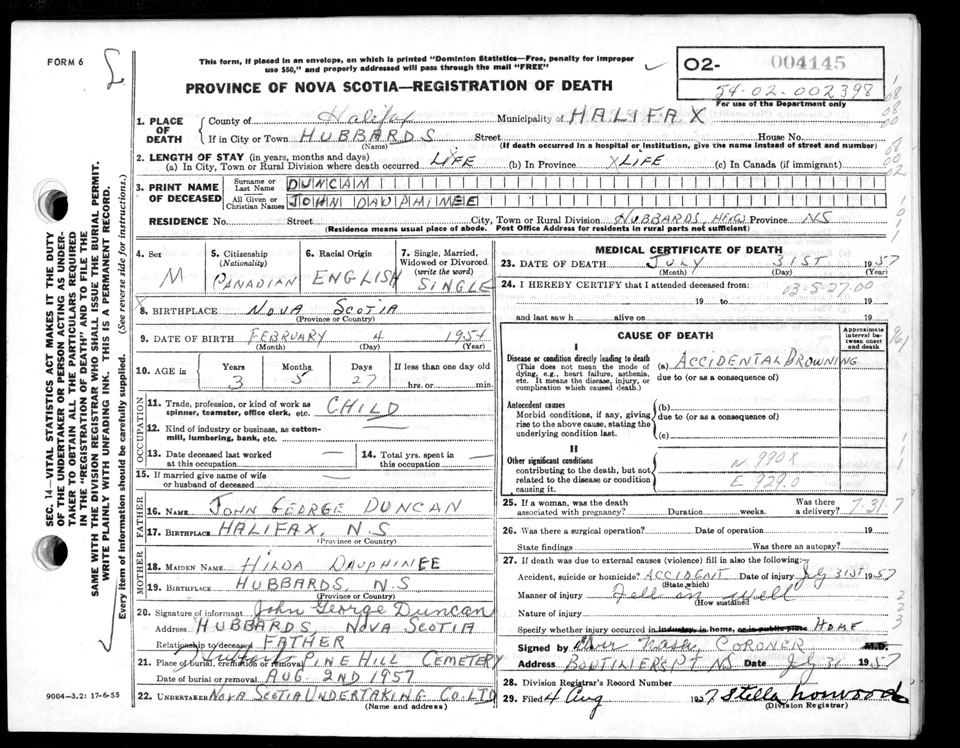 FORM 6
This form, if placed in an envelope, on which is printed "Dominion Statistics—Free, penalty for improper
use $50," and properly addressed will pass through the mail "FREE"
PROVINCE OF NOVA SCOTIA—REGISTRATION OF DEATH
02- 004145
54-02-002398
For use of the Department only
1. PLACE OF DEATH County of Halifax Municipality of HALIFAX
If in City or Town HUBBARDS Street House No.
(Name) (If death occurred in a hospital or institution, give the name instead of street and number)
2. LENGTH OF STAY (in years, months and days)
(a) In City, Town or Rural Division where death occurred LIFE (b) In Province LIFE (c) In Canada (if immigrant)
3. PRINT NAME OF DECEASED Surname or Last Name DUNCAN
All Given or Christian Names JOHN DAUPHINEE
RESIDENCE No. Street City, Town or Rural Division HUBBARDS, HFX Province NS
(Residence means usual place of abode. Post Office Address for residents in rural parts not sufficient)
4. Sex M
5. Citizenship (Nationality) CANADIAN
6. Racial Origin ENGLISH
7. Single, Married, Widowed or Divorced (write the word) SINGLE
8. BIRTHPLACE NOVA SCOTIA
(Province or Country)
9. DATE OF BIRTH FEBRUARY 4 1954
(Month) (Day) (Year)
10. AGE in Years 3 Months 5 Days 27 If less than one day old hrs. or min.
OCCUPATION
11. Trade, profession, or kind of work as spinner, teamster, office clerk, etc. CHILD
12. Kind of industry or business, as cotton-mill, lumbering, bank, etc.
13. Date deceased last worked at this occupation —
14. Total yrs. spent in this occupation —
15. If married give name of wife or husband of deceased —
FATHER
16. NAME JOHN GEORGE DUNCAN
17. BIRTHPLACE HALIFAX, N.S
(Province or Country)
MOTHER
18. MAIDEN NAME HILDA DAUPHINEE
19. BIRTHPLACE HUBBARDS, N.S
(Province or Country)
20. Signature of informant John George Duncan
Address HUBBARDS NOVA SCOTIA
Relationship to deceased FATHER
21. Place of burial, cremation or removal PINE HILL CEMETERY
Date of burial or removal AUG. 2ND 1957
22. UNDERTAKER NOVA SCOTIA UNDERTAKING CO. LTD
(Name and address)
MEDICAL CERTIFICATE OF DEATH
23. DATE OF DEATH JULY 31ST 1957
(Month) (Day) (Year)
24. I HEREBY CERTIFY that I attended deceased from:
03-5-27.00
19 to 19
and last saw h alive on 19
CAUSE OF DEATH
Approximate interval between onset and death
I
Disease or condition directly leading to death
(This does not mean the mode of dying, e.g., heart failure, asthenia, etc. It means the disease, injury, or complication which caused death.)
(a) ACCIDENTAL DROWNING
due to (or as a consequence of)
Antecedent causes
Morbid conditions, if any, giving rise to the above cause, stating the underlying condition last.
(b)
due to (or as a consequence of)
(c)
II
Other significant conditions
contributing to the death, but not related to the disease or condition causing it.
N 990X
E 929.0
25. If a woman, was the death associated with pregnancy? Duration weeks. Was there a delivery?
7.31.7
26. Was there a surgical operation? Date of operation 19
State findings Was there an autopsy?
27. If death was due to external causes (violence) fill in also the following:
Accident, suicide or homicide? ACCIDENT Date of injury July 31ST 1957
(State which)
Manner of injury Fell in well
(How sustained)
Nature of injury
Specify whether injury occurred in industry, is home, or in public place HOME
Signed by Nash, CORONER M.D.
Address BOUTILIERS PT. NS Date July 31 1957
28. Division Registrar's Record Number
29. Filed 4 Aug 1957 Stella Norwood
(Division Registrar)
SEC. 14—VITAL STATISTICS ACT MAKES IT THE DUTY
OF THE UNDERTAKER OR PERSON ACTING AS UNDER-
TAKER TO OBTAIN ALL THE PARTICULARS REQUIRED
IN THE "REGISTRATION OF DEATH" AND TO FILE THE
SAME WITH THE DIVISION REGISTRAR WHO SHALL ISSUE THE BURIAL PERMIT.
WRITE PLAINLY WITH UNFADING INK. THIS IS A PERMANENT RECORD.
Every item of information should be carefully supplied. (See reverse side for instructions.)
9004-3.2: 17-6-55